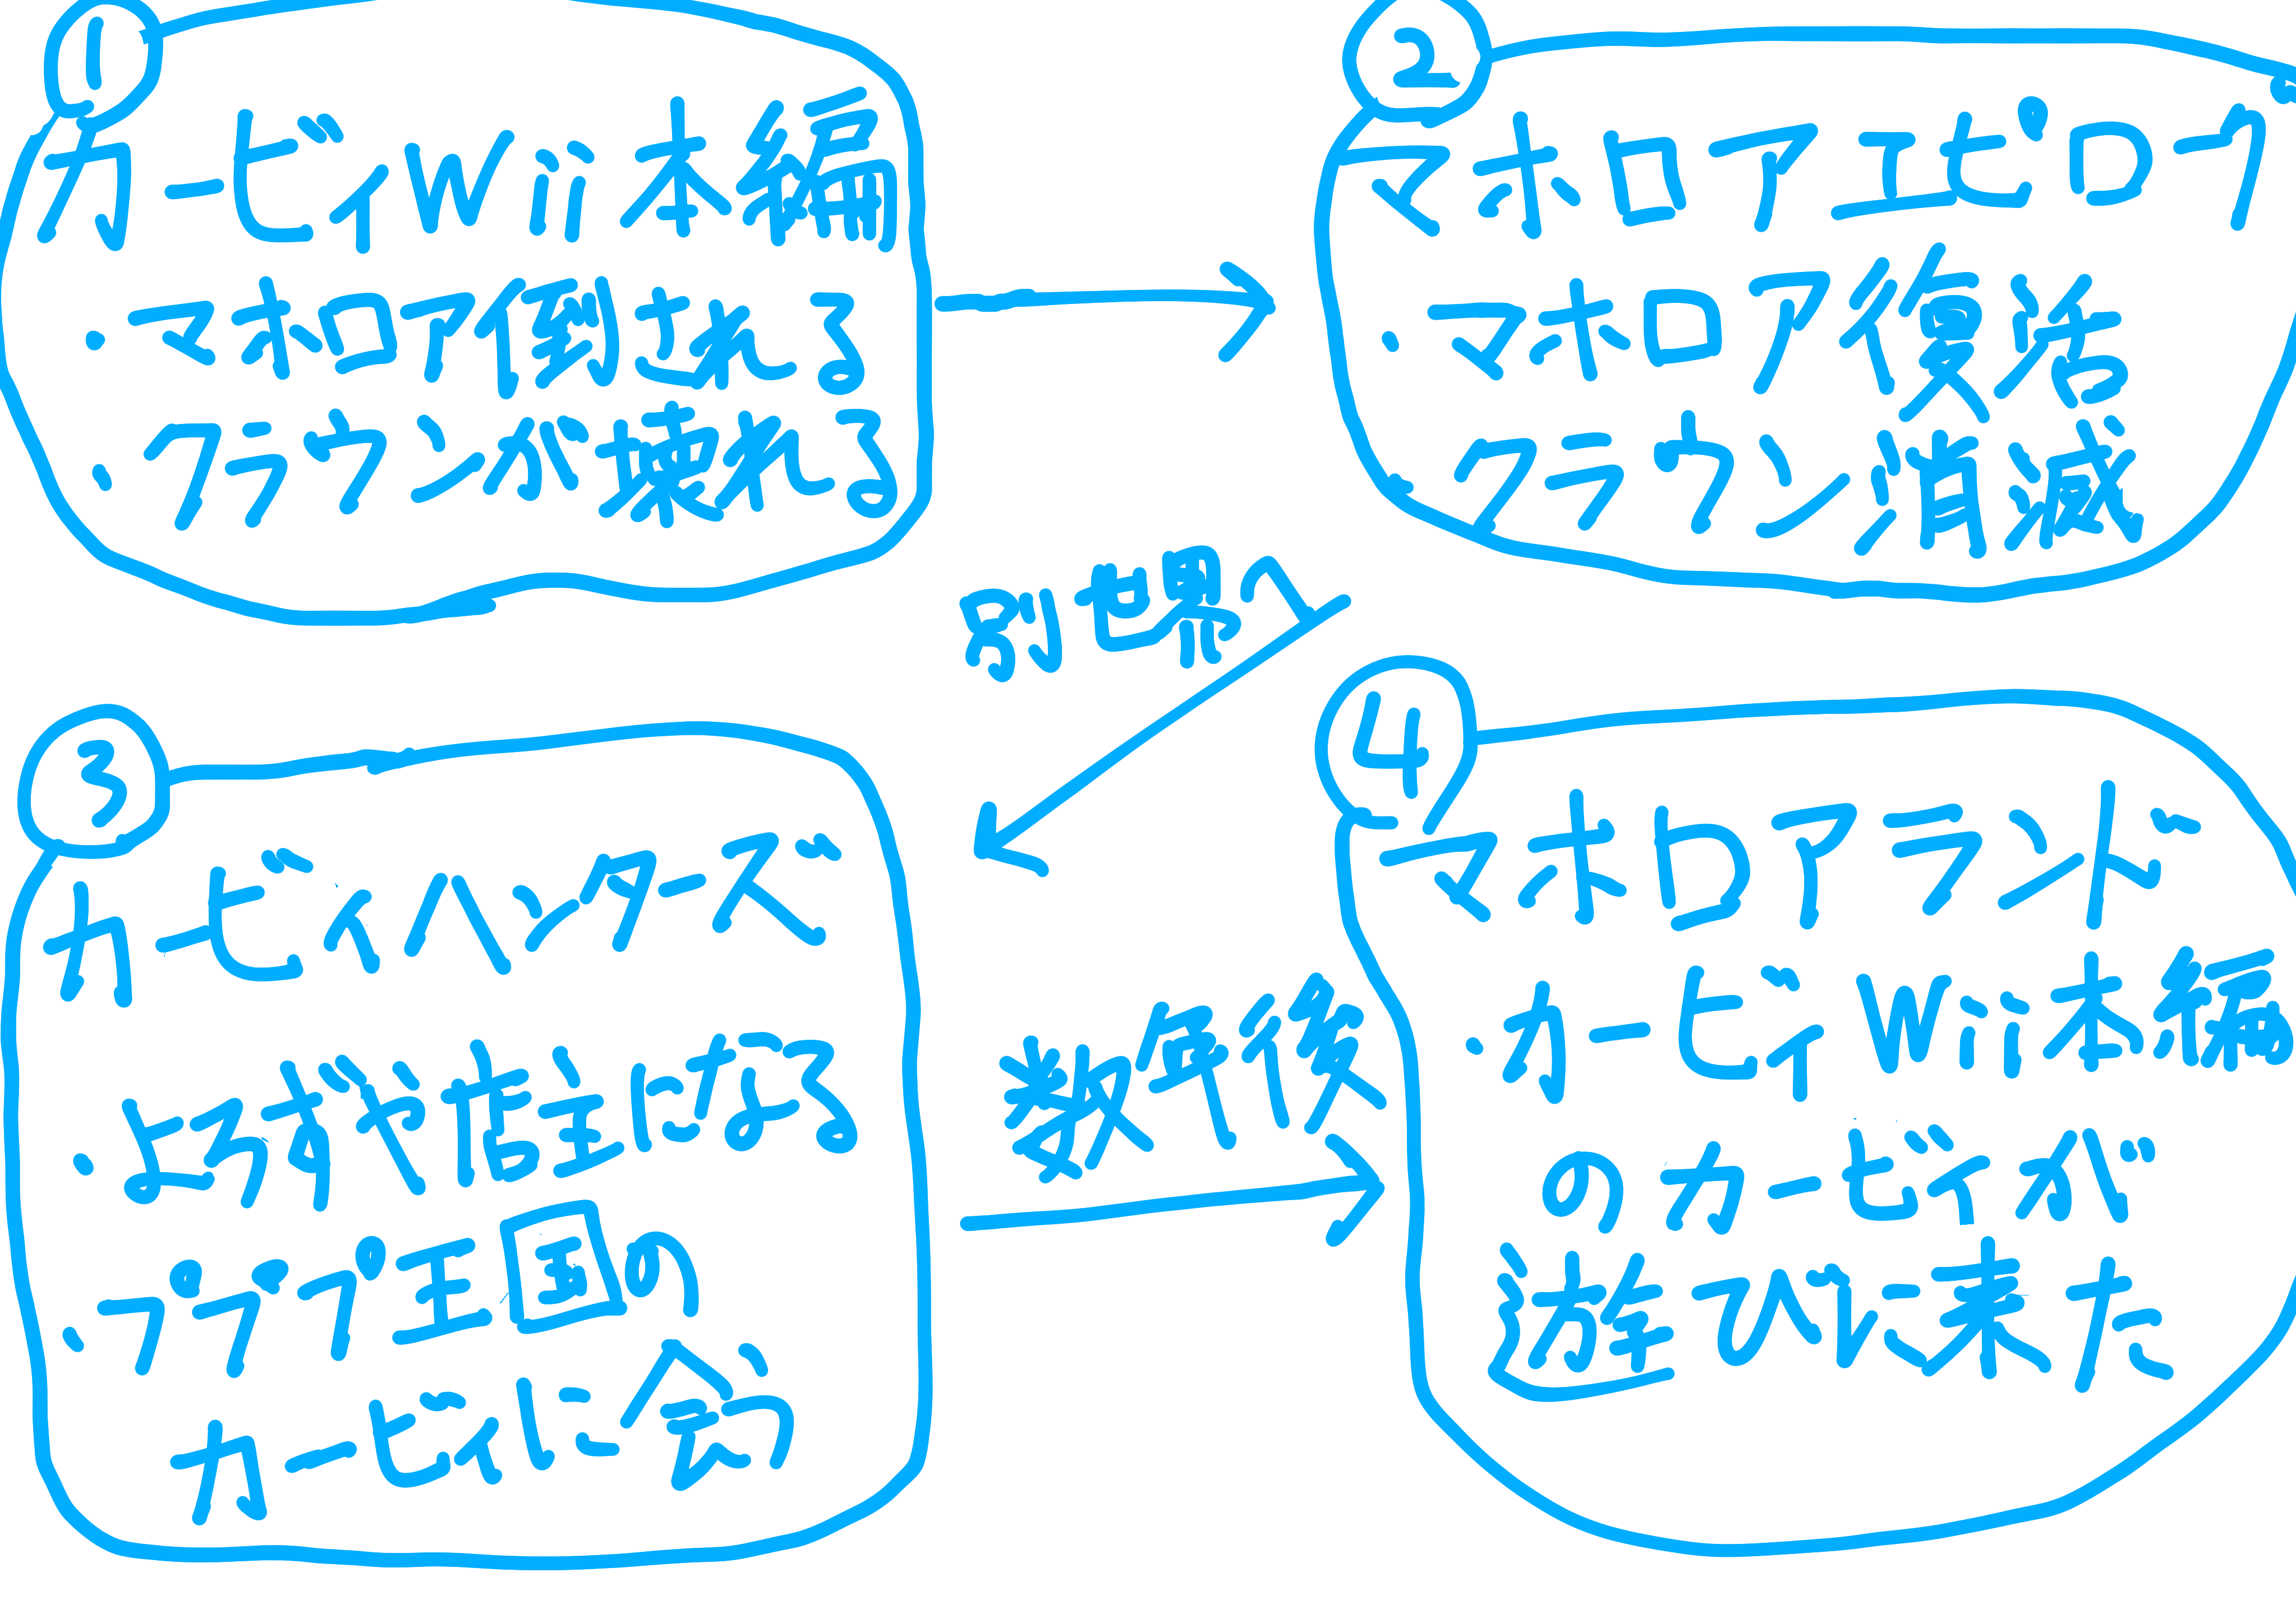 ①
カービィWii本編
・マホロア倒される
・クラウンが壊れる
②
マホロアエピローグ
・マホロア復活
・クラウン消滅
別世界へ
③
カービィハンターズ
・よろずや店主になる
・プププ王国の
カービィに会う
数年後
④
マホロアランド
・カービィWii本編
のカービィが
遊びに来た